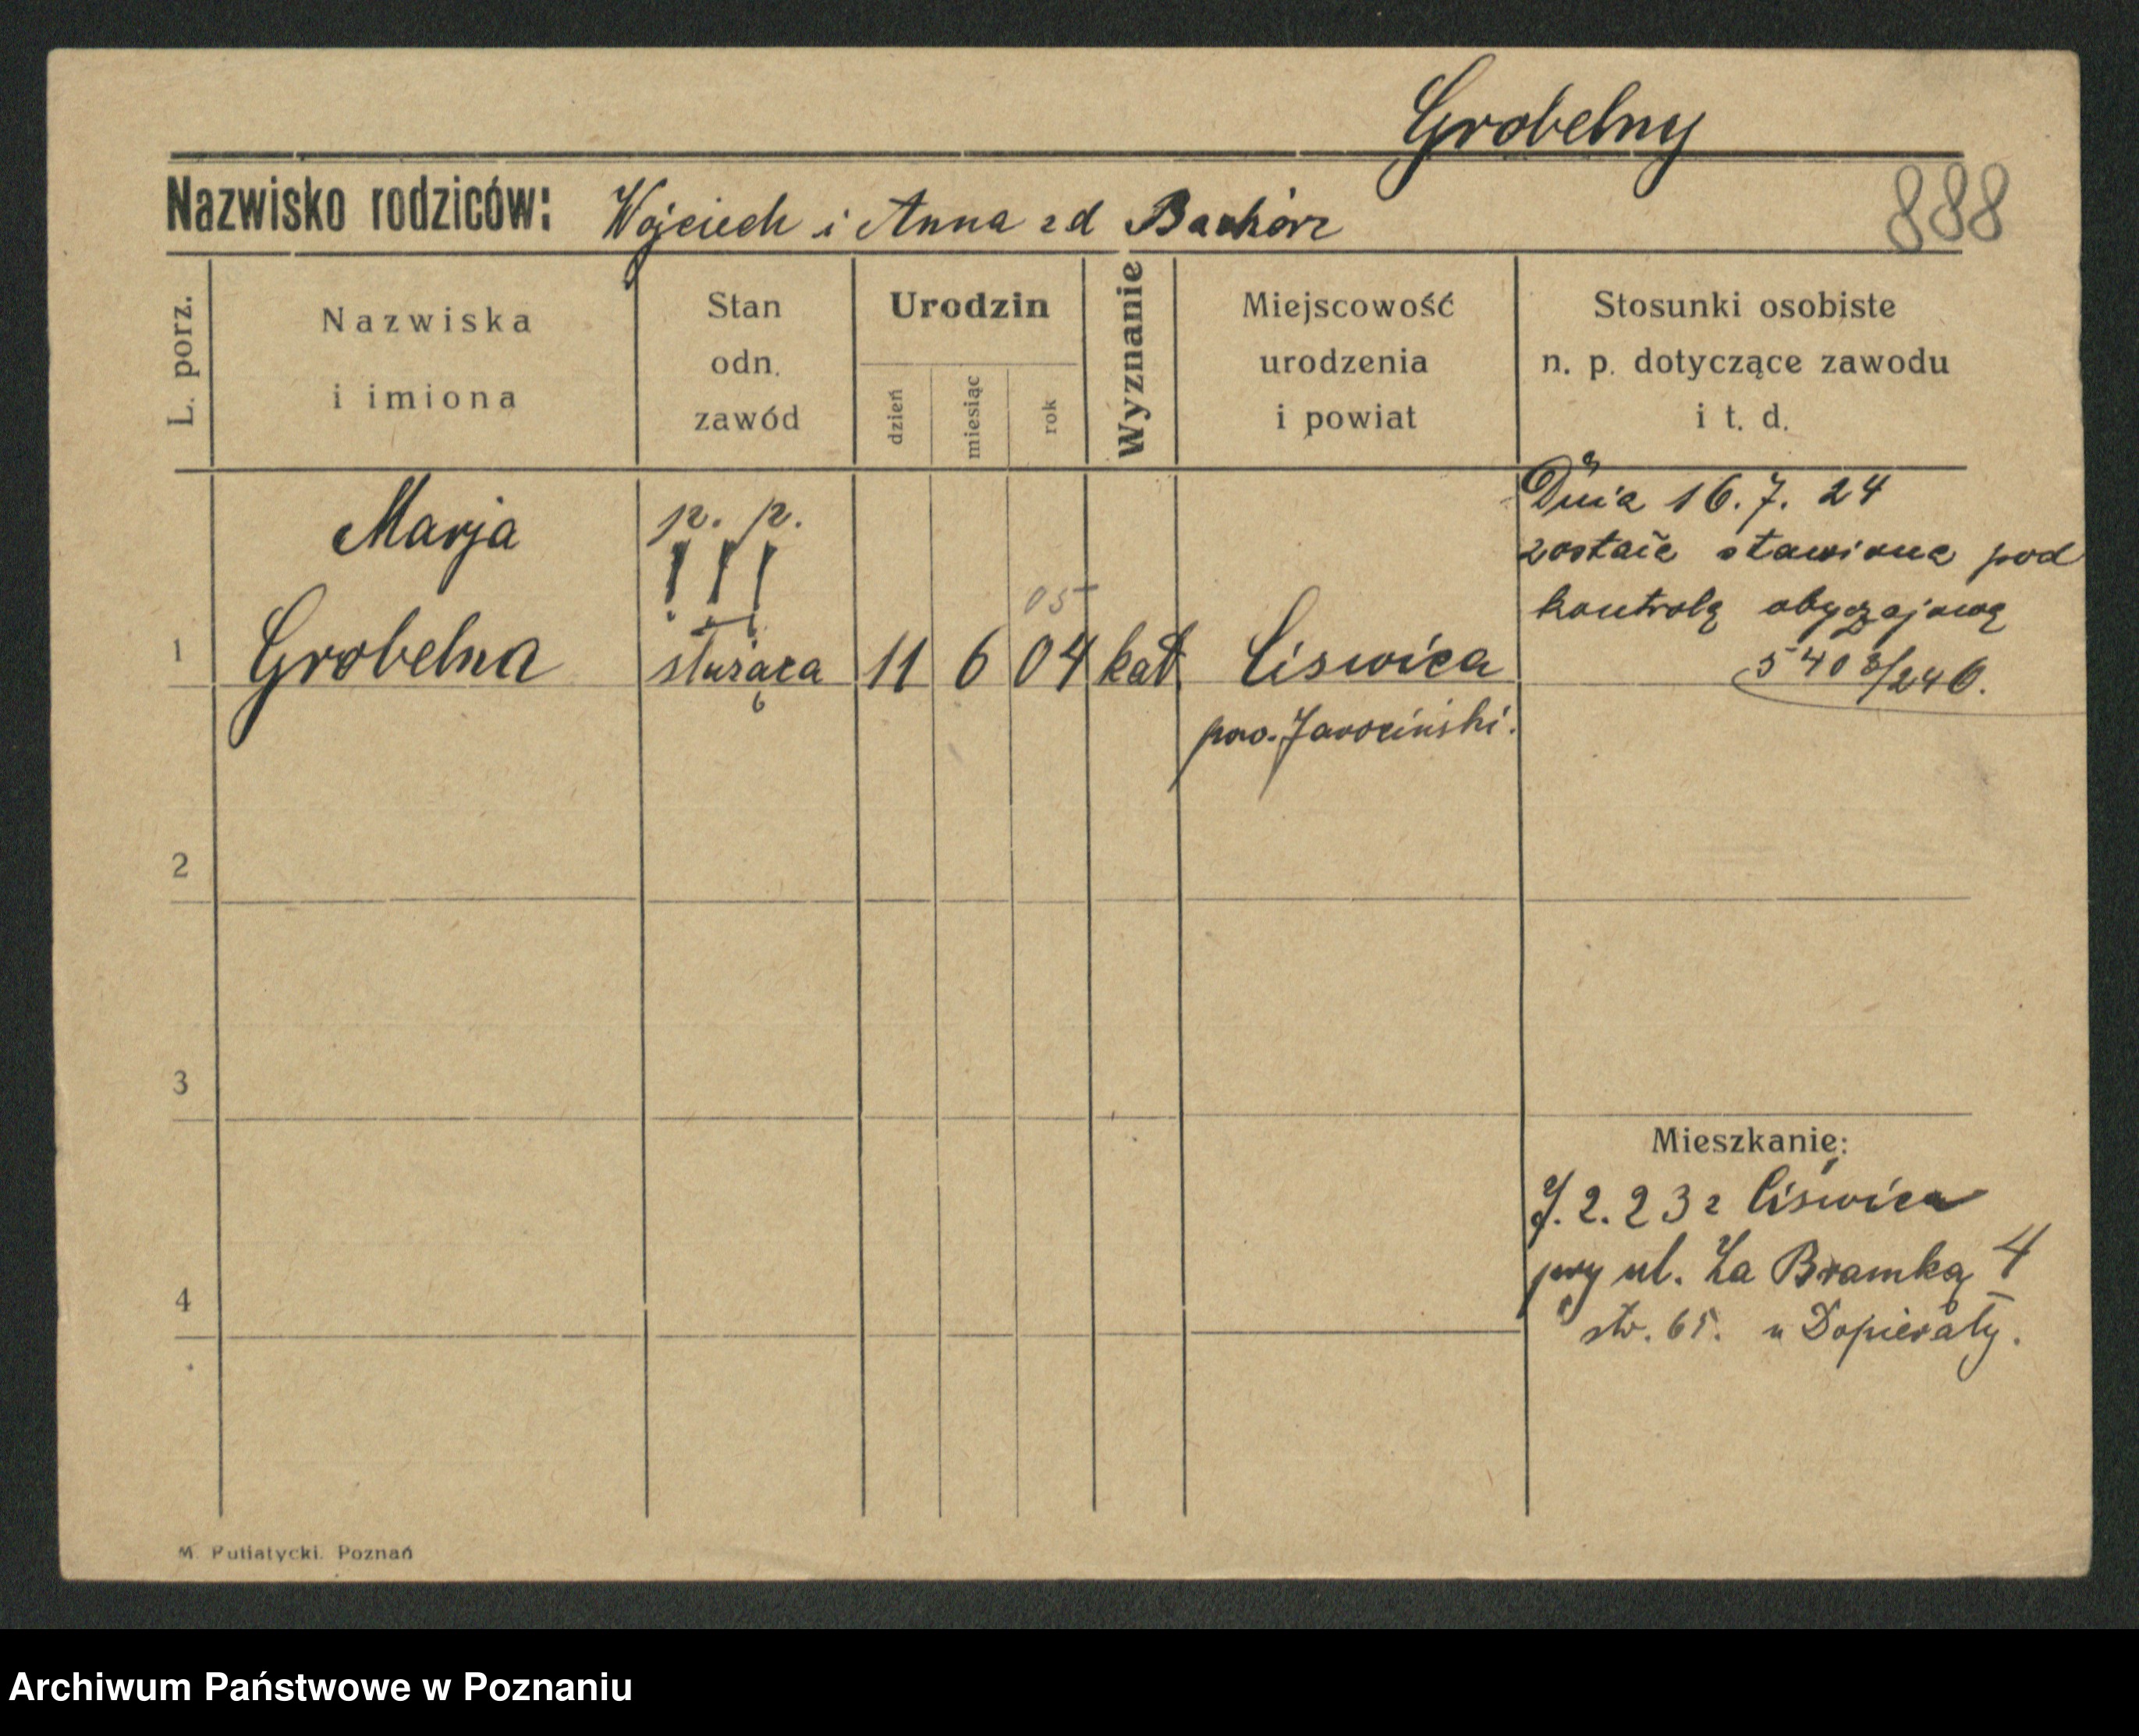 Grobelny
888
Nazwisko rodziców: Wojciech i Anna zd Bachórz
L. porz.
Nazwiska
i imiona
Stan
odn.
zawód
Urodzin
dzień
miesiąc
rok
Wyznanie
Miejscowość
urodzenia
i powiat
Stosunki osobiste
n. p. dotyczące zawodu
i t. d.
Marja
p. p.
!!!
Dnia 16. 7. 24
zostaie stawiona pod
kontrolą obyczajową
5408/246.
05
1 Grobelna służąca 11 6 04 kat. Ciswica
pow. Jarociński.
2
3
Mieszkanie:
J. 2. 23 z Ciświca
przy ul. Za Bramką 4
4
str. 65. u Dopierały.
M. Putiatycki. Poznań
Archiwum Państwowe w Poznaniu